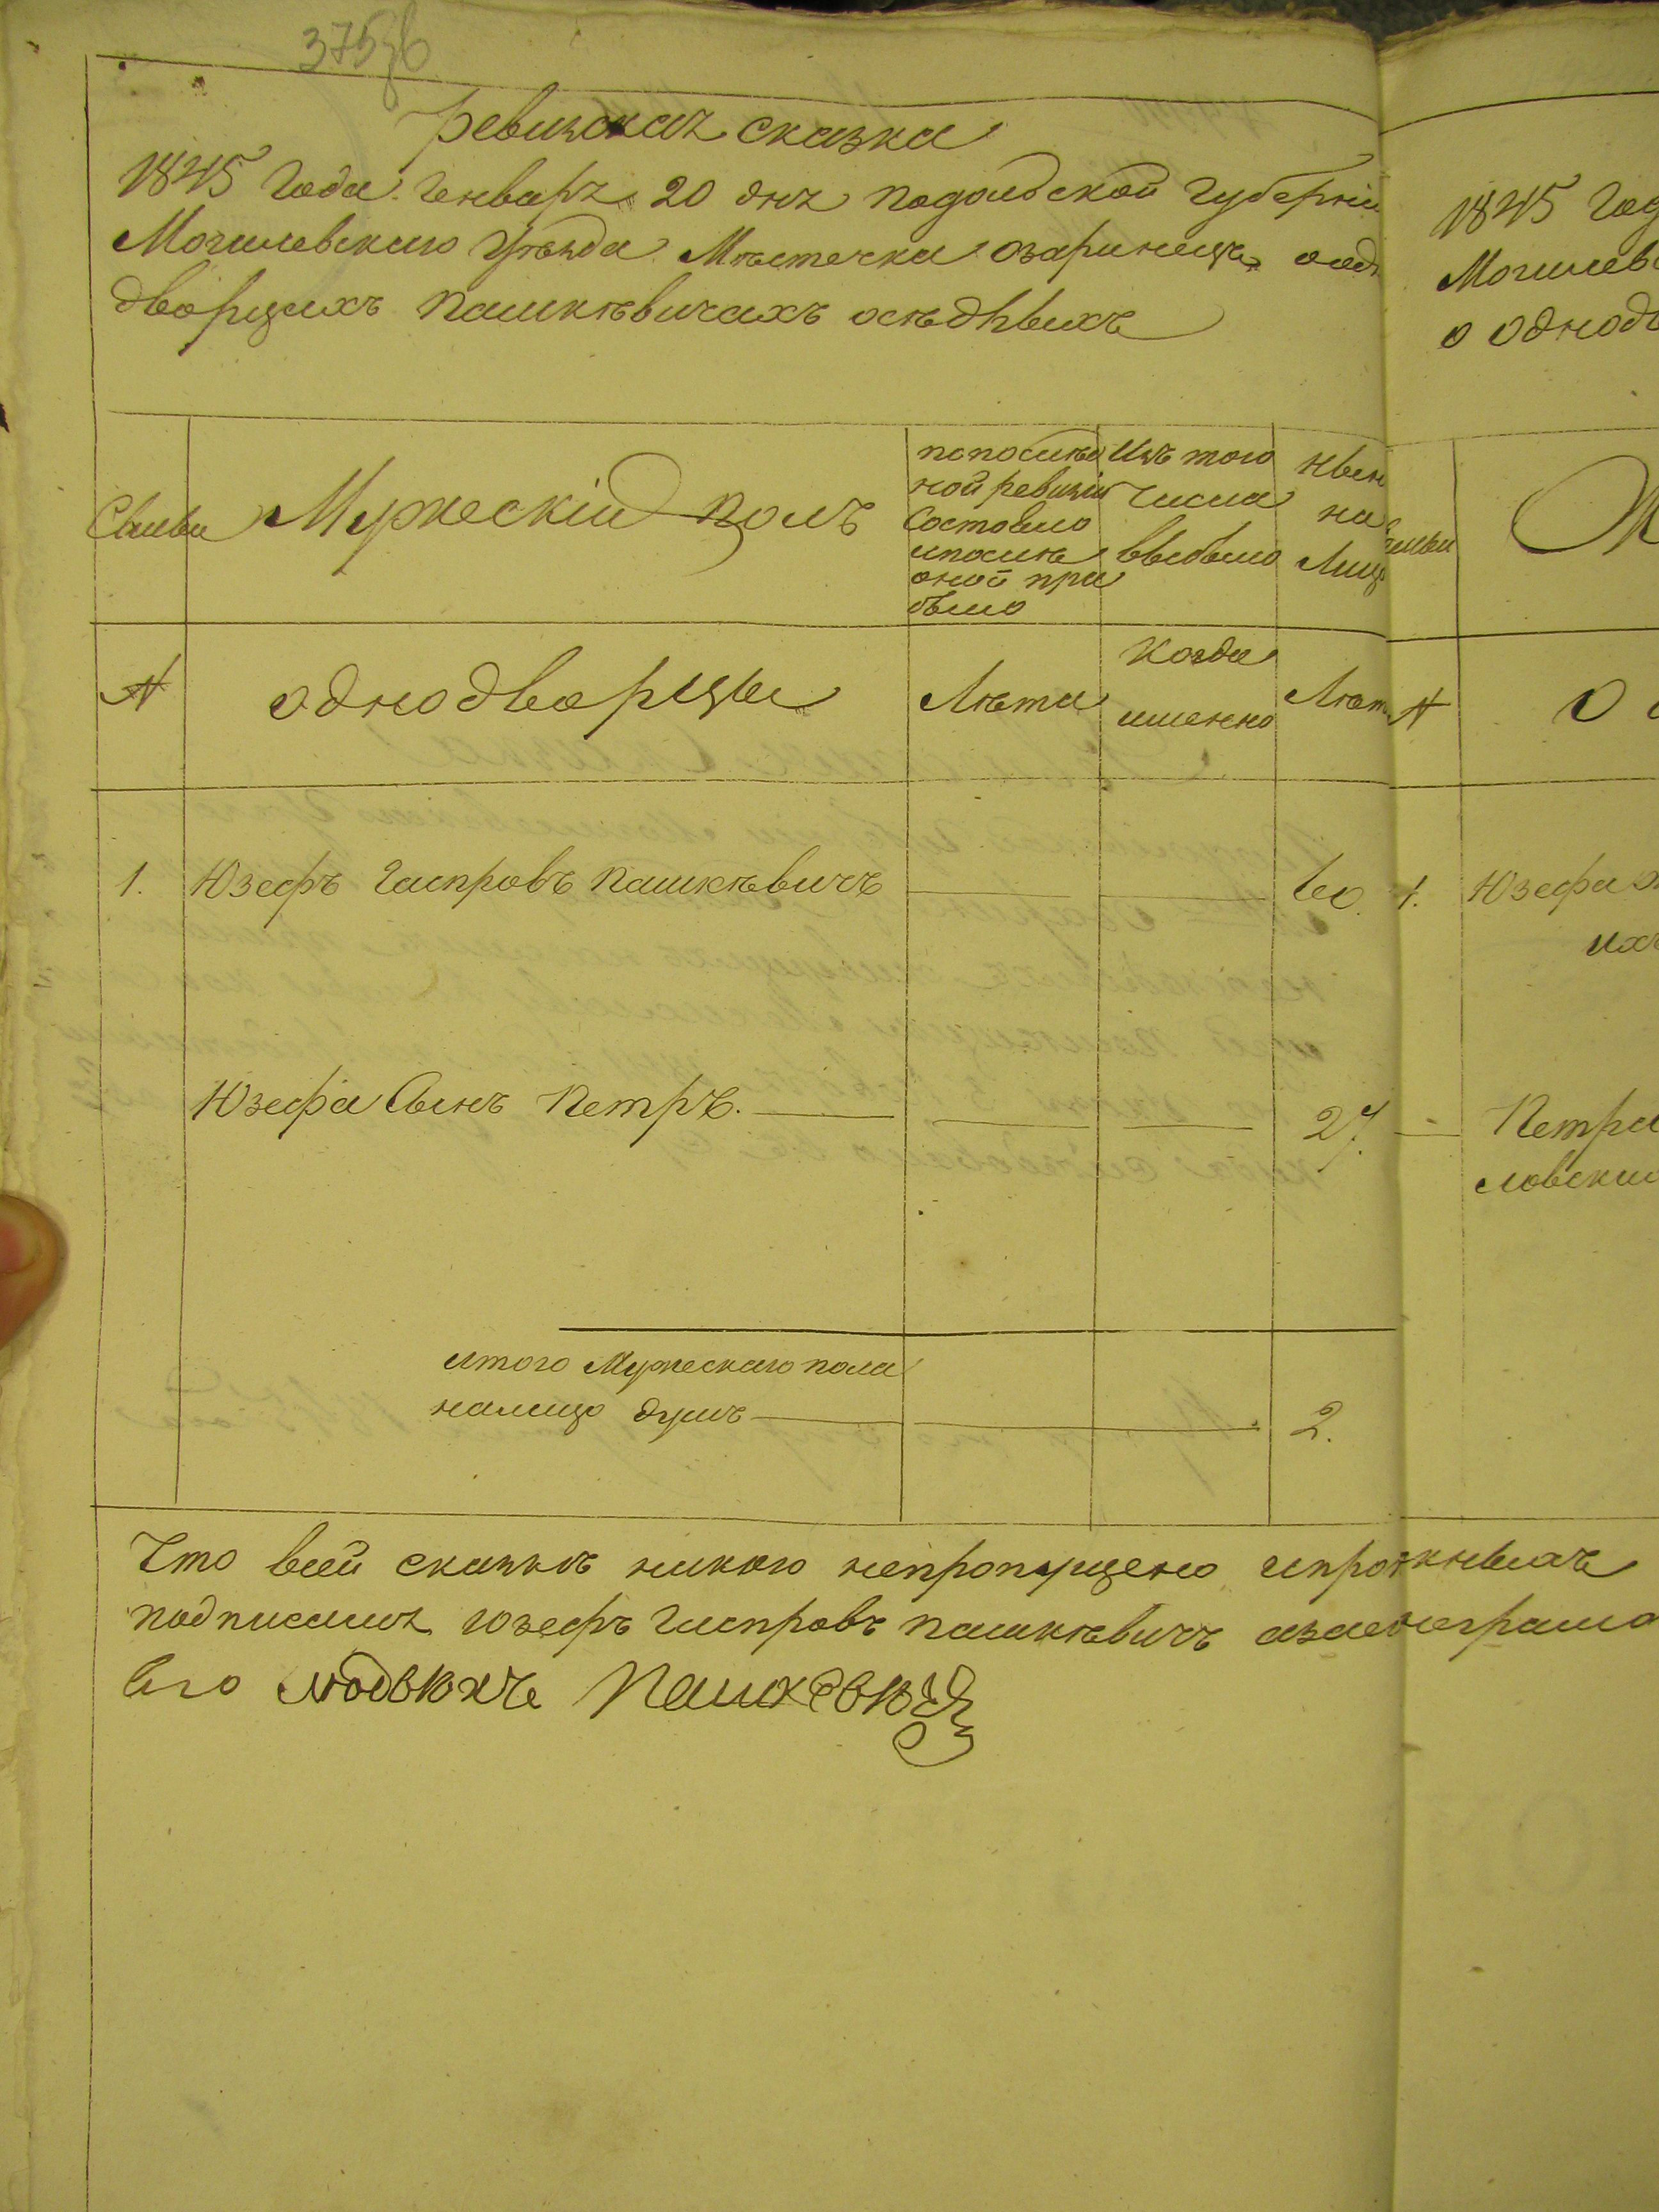 375об
Ревизская сказка
1845 Года Генваря 20 дня Подольской Губерніи
Могилевскаго Уѣзда Мѣстечка Озаринецъ о од
дворцахъ Пашкѣвичахъ осѣдлыхъ
Мужескій полъ
попослѣд
ной ревизіи
состояло
ипослѣ
оной при
было
Изъ того
числа
выбыло
Нын
на
Лиц
№
однодворцы
Лѣта
Когда
именно
Лѣт
1. Юзефъ Гаспровъ Пашкѣвичъ 60.
Юзефа Сынъ Петръ. 27.
итого Мужескаго пола
налицо душъ 2.
Что всей сказкѣ никого непропущено
подписался Юзефъ Гаспровъ Пашкѣвичъ
его Пашкевич
1845 Год
Могилев
о однод
М
№
О
1. Юзефа
их
Петра
ловски